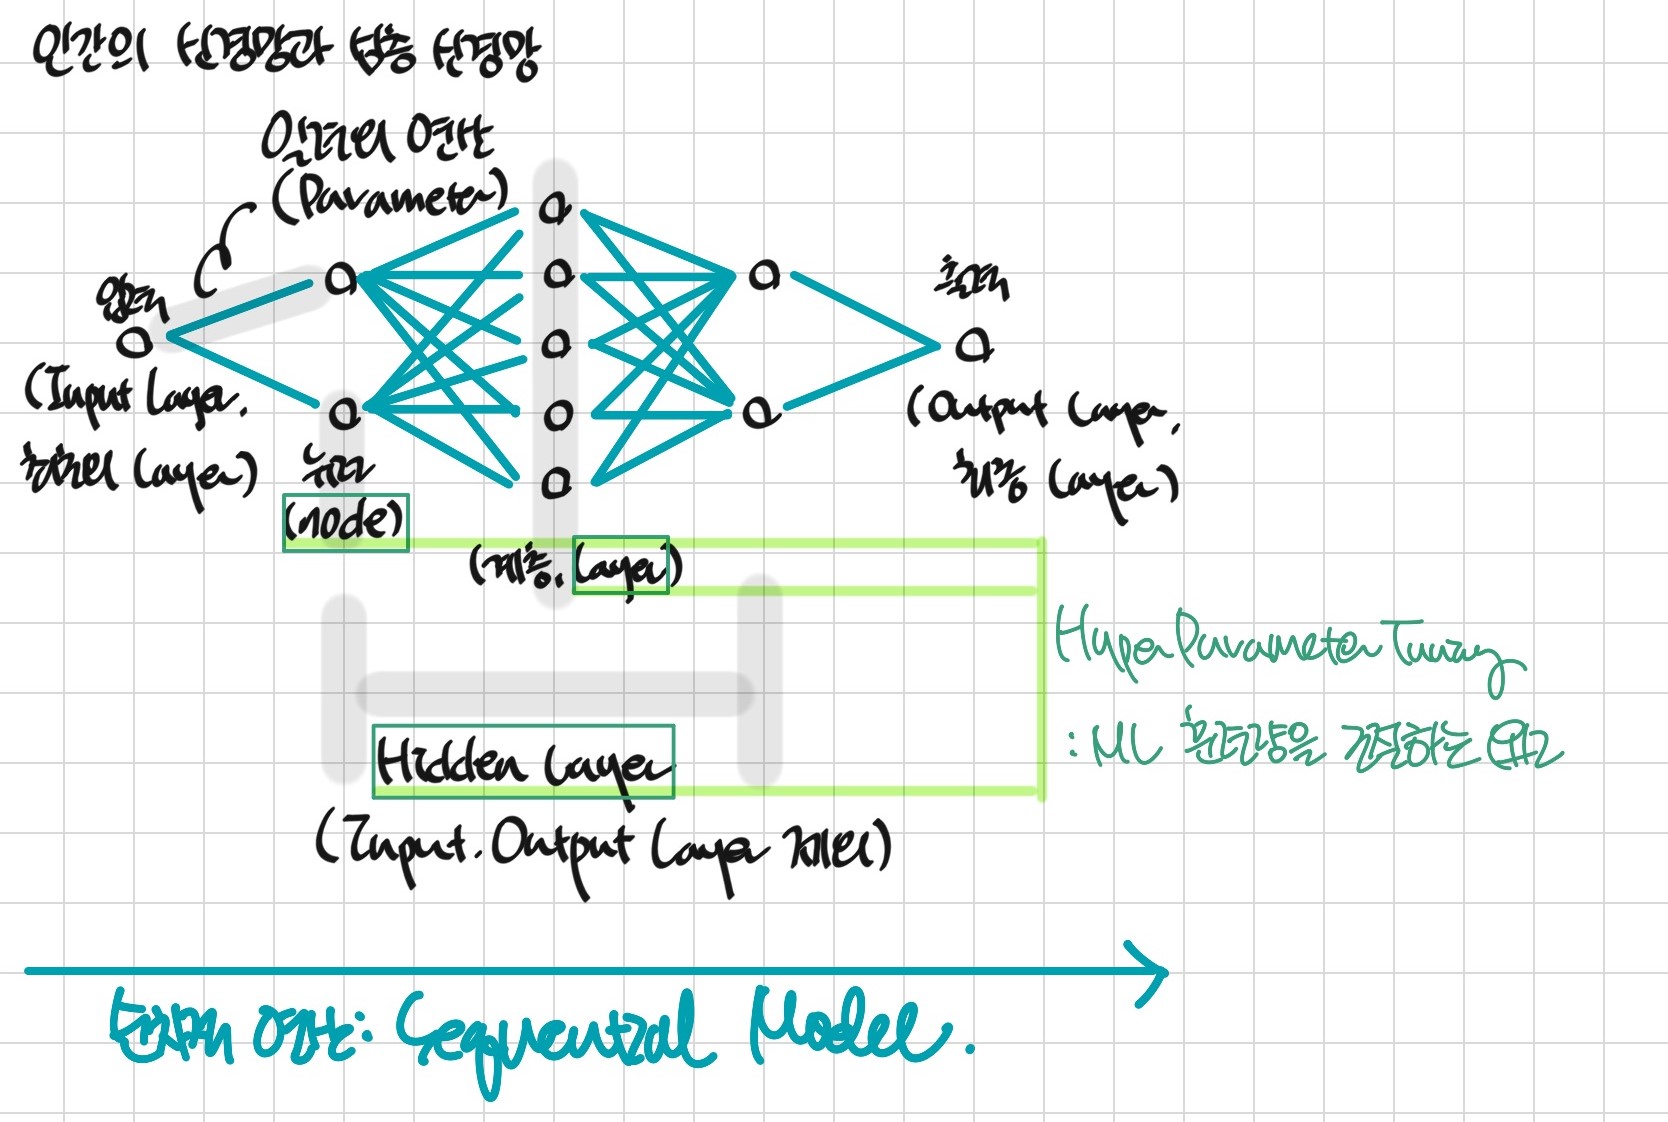 인간의 신경망과 심층 신경망
일련의 연산
(Parameter)
입력
(Input Layer.
전처리 Layer)
뉴런
(node)
(계층. Layer)
출력
(Output Layer.
최종 Layer)
Hidden Layer
(Input. Output Layer 제외)
HyperParameter Tuning
: ML 을 결정하는 요소
순차적 연산: Sequential Model.